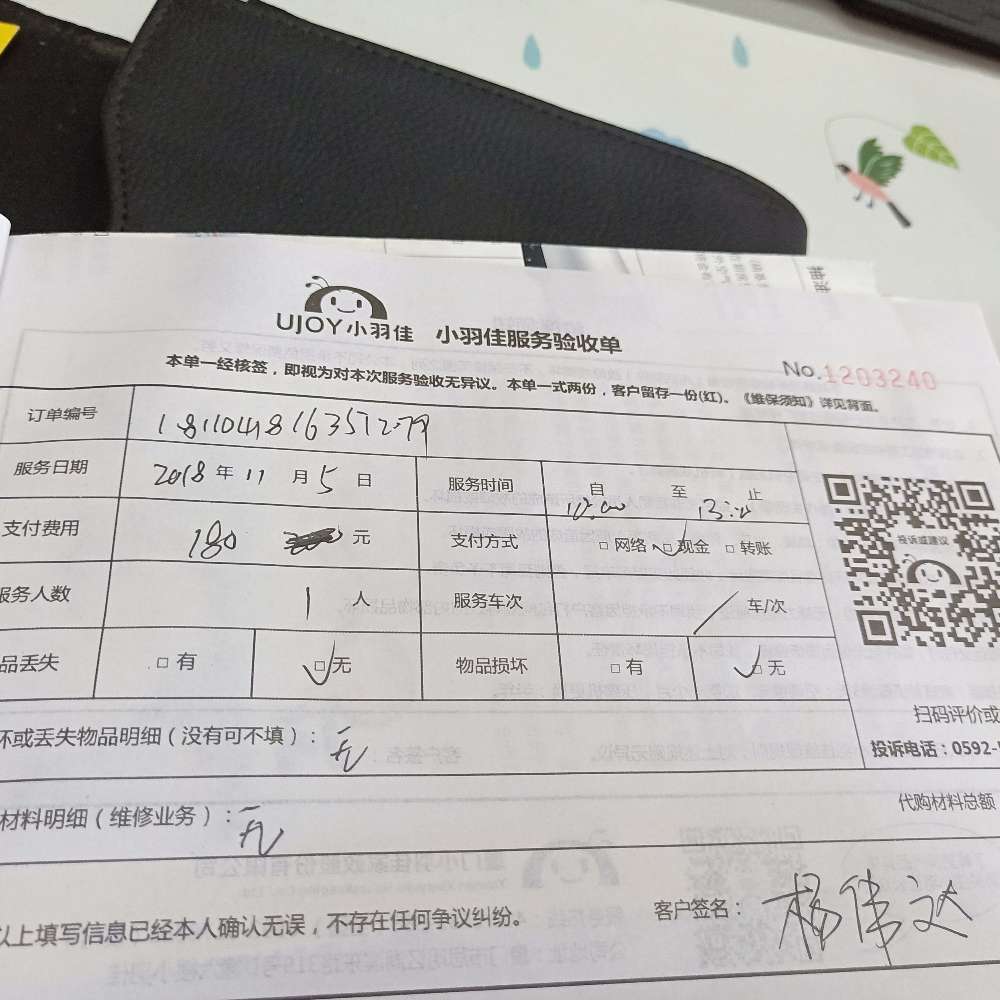 UJOY小羽佳 小羽佳服务验收单
No.1203240
本单一经核签，即视为对本次服务验收无异议。本单一式两份，客户留存一份(红)。《维保须知》详见背面。
订单编号
服务日期 2018年11月5日 服务时间 自 至 止
支付费用 180 元 支付方式 □网络 □现金 □转账
服务人数 1 人 服务车次 / 车/次
品丢失 □有 □无 物品损坏 □有 □无
投诉或建议
扫码评价或
投诉电话：0592-
坏或丢失物品明细（没有可不填）：无
材料明细（维修业务）：无
代购材料总额
以上填写信息已经本人确认无误，不存在任何争议纠纷。
客户签名：杨伟达